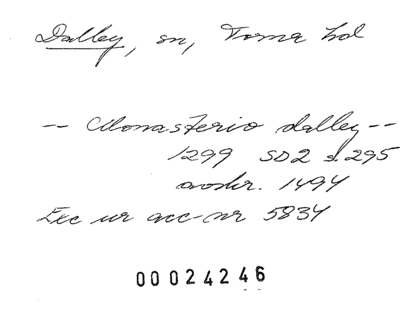 Dalley, sn, Torna hd
-- Monasterio dalley --
1299 SD2 s 295
avskr. 1494
Exc ur acc-nr 5834
00024246